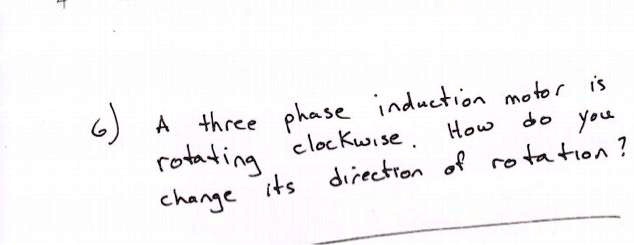 6) A three phase induction motor is
rotating clockwise. How do you
change its direction of rotation?